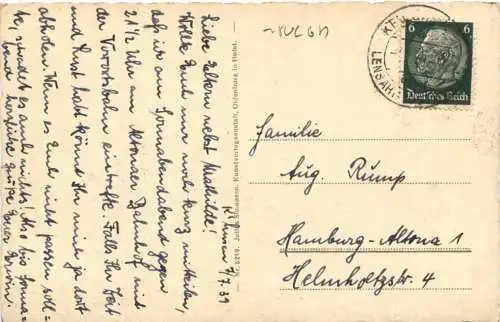 Kellenhusen 7/7.39
Liebe Eltern nebst Mathilde!
Wollte Euch nur noch kurz mitteilen,
daß ich am Sonnabendabend gegen
21½ Uhr am Altonaer Bahnhof mit
der Vorortsbahn eintreffe. Falls Ihr Zeit
und Lust habt könnt Ihr mich ja dort
abholen. Wenn es Euch nicht passen soll=
te, schadet es auch nichts! Also bis Sonna=
bend herzliche Grüße Euer Erwin.
Nr. 2216. Julius Simonsen, Kunstverlagsanstalt, Oldenburg in Holst.
6 6
Deutsches Reich
LENSAH
Familie
Aug. Rump
Hamburg-Altona 1
Helmholtzstr. 4